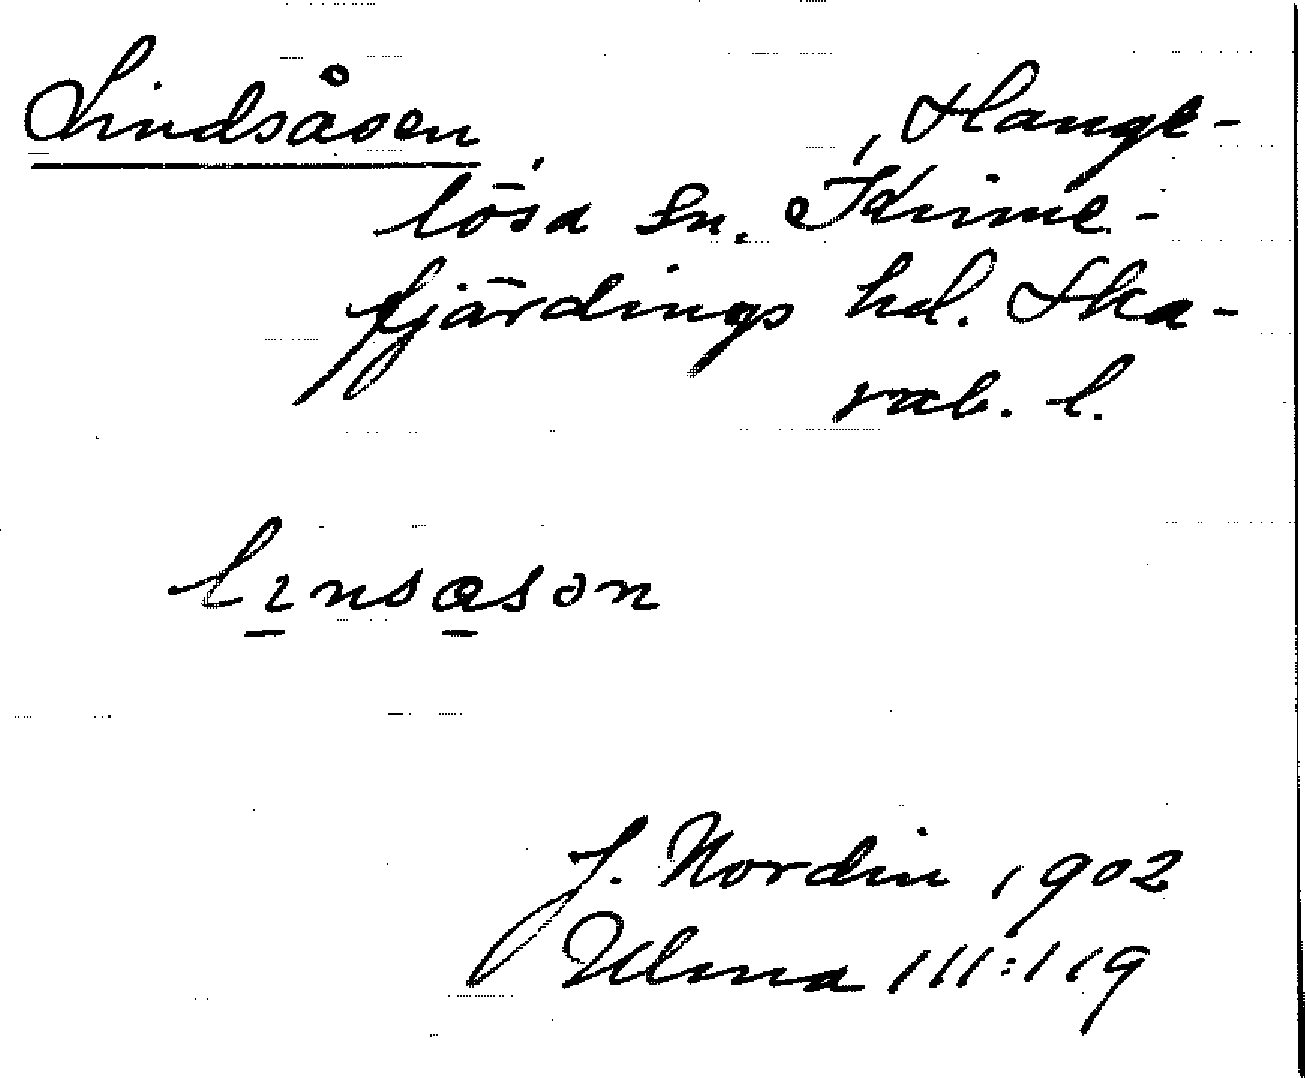 Lindsåsen, , Hange-
lösa sn. Kinne-
fjärdings hd. Ska-
rab. l.
lɩnsasən
J. Nordin 1902
Ulma 111:119